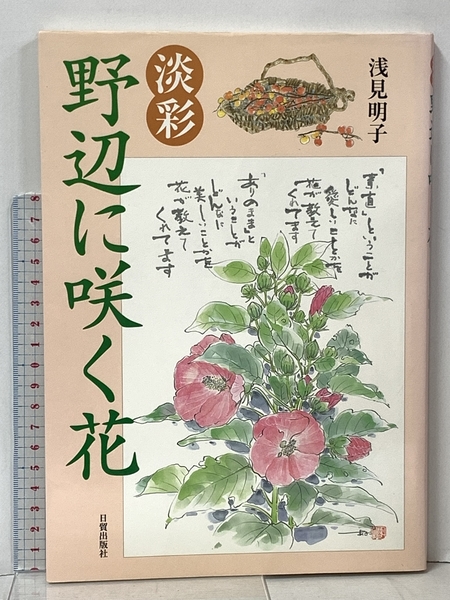 淡彩
野辺に咲く花
浅見明子
「素直」ということが
どんなに
愛しいことかを
花が教えて
くれてます
「ありのまま」と
いうことが
どんなに
美しいことかを
花が教えて
くれてます
日貿出版社